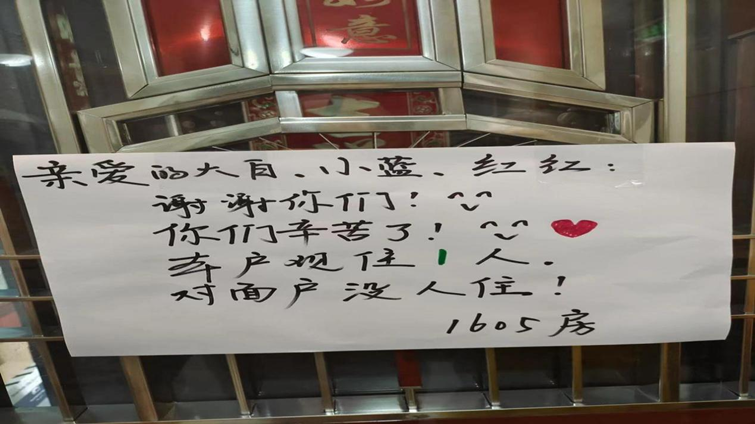 如意
亲爱的大白、小蓝、红红：
谢谢你们！^_^
你们辛苦了！^_^
本户现住1人.
对面户没人住！
1605房